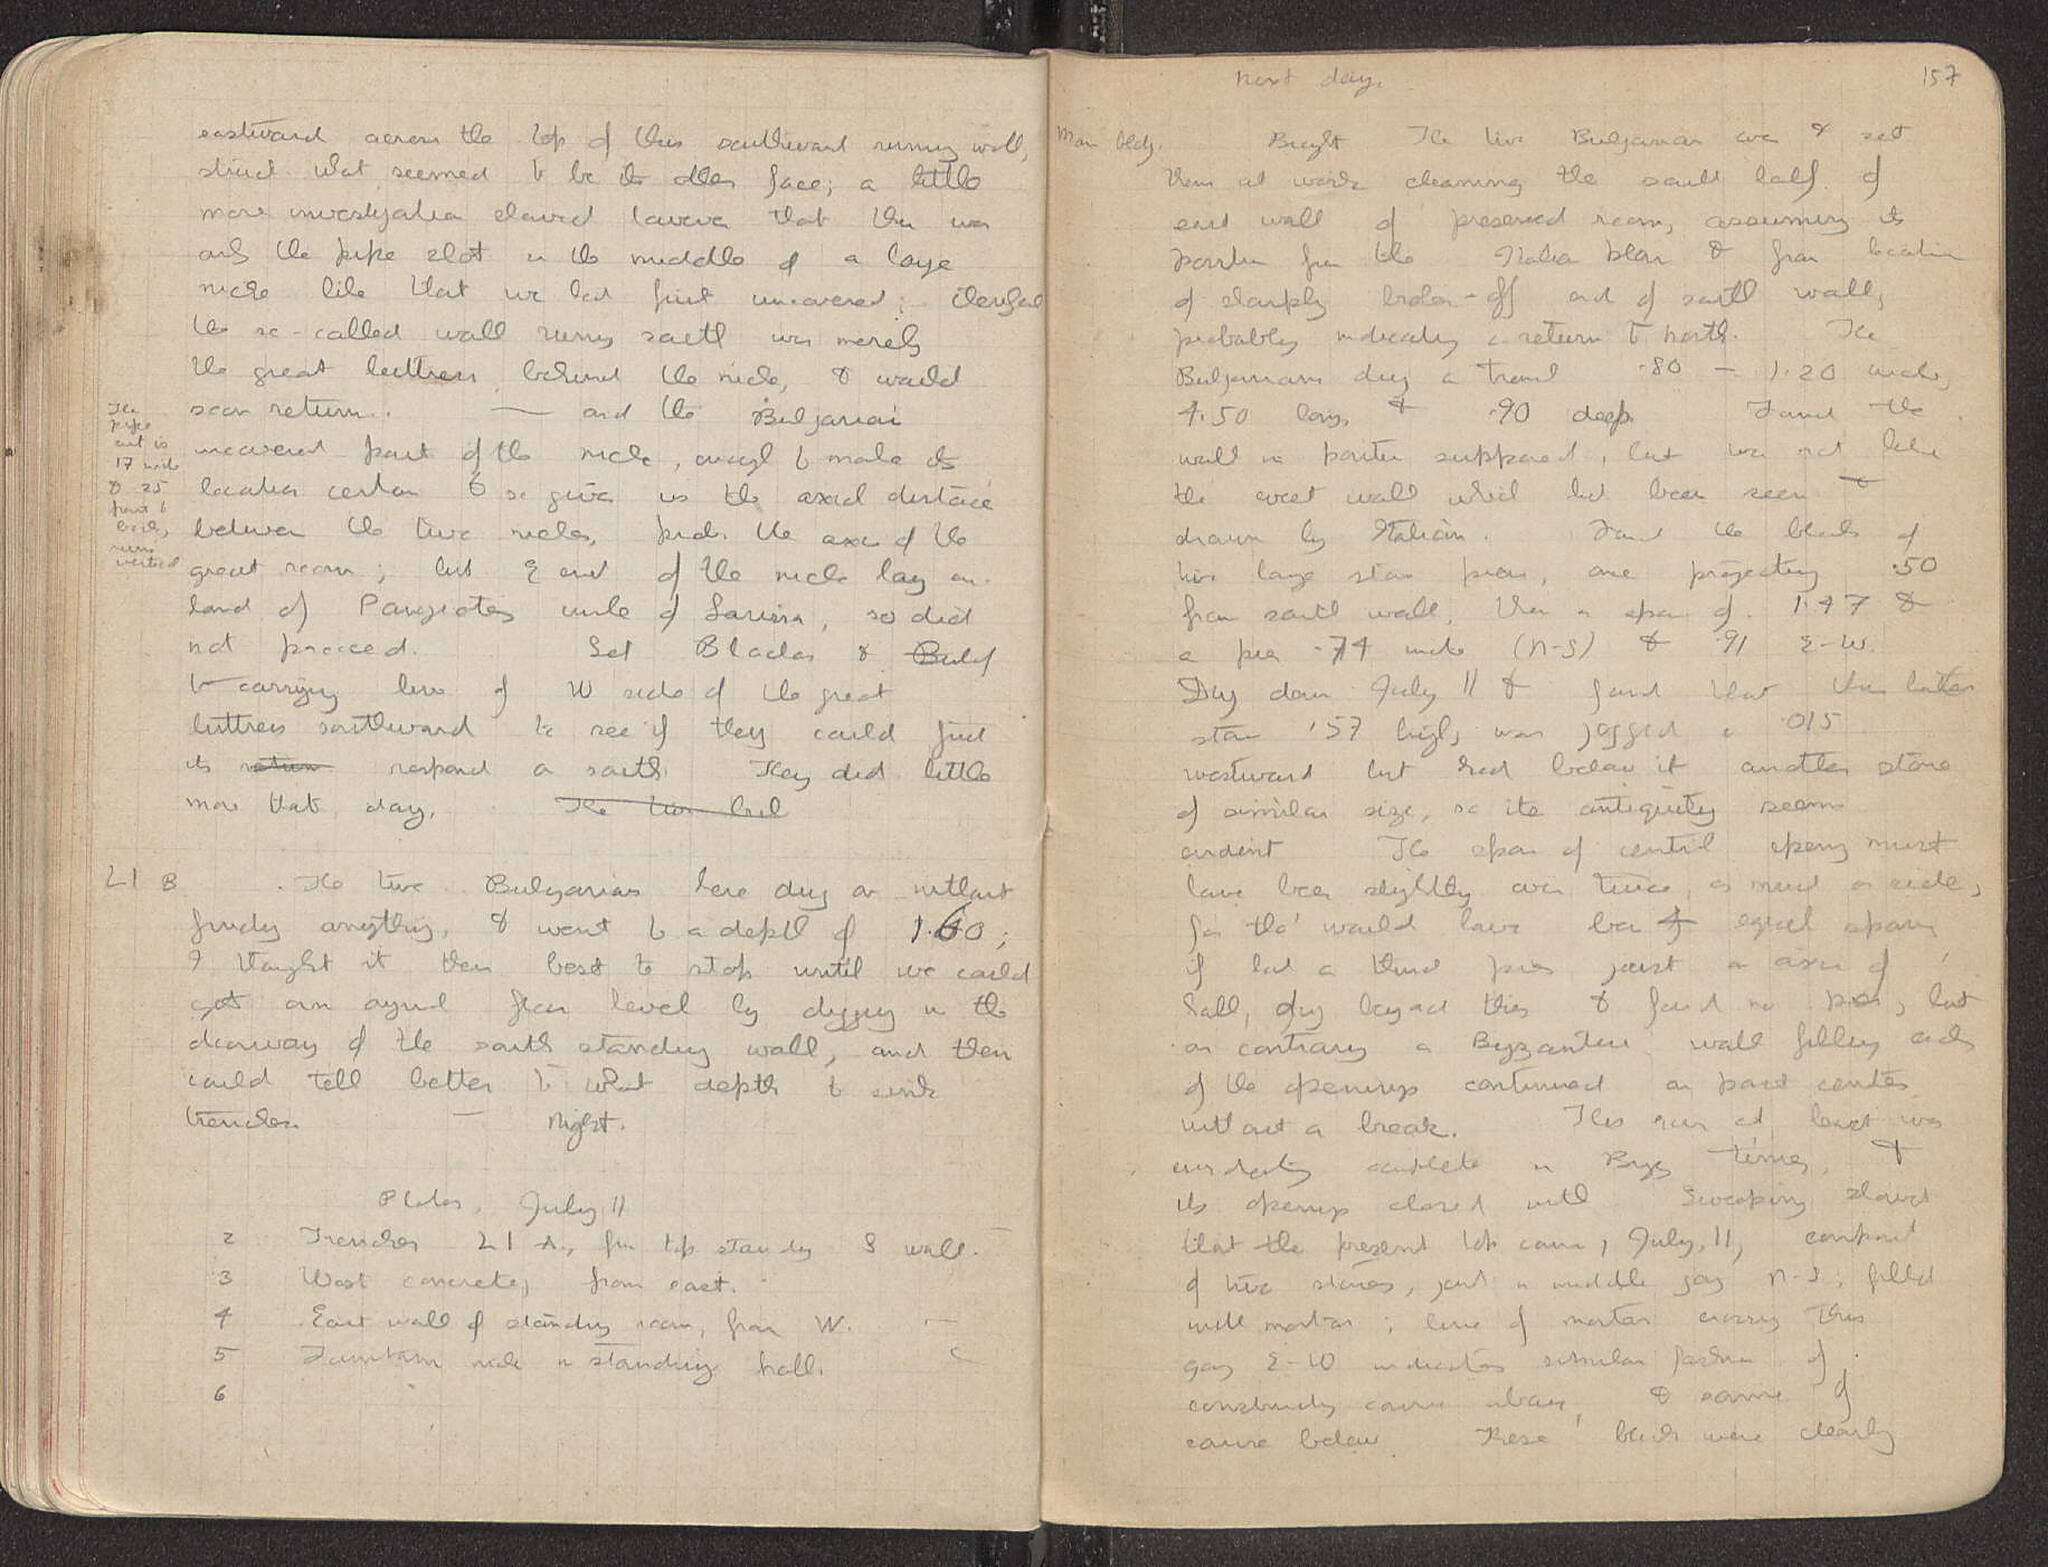 eastward across the top of this southward running wall,
struck what seemed to be its other face; a little
more investigation showed however that this was
only the pipe slot in the middle of a large
niche like that we had first uncovered;
the so-called wall running south was merely
the great buttress behind the niche, & would
soon return. — and the Bulgarian
uncovered part of the niche, enough to make its
location certain & so give us the axial distance
between the two niches, prob. the axis of the
great room; but E end of the niche lay on
land of Pangiotes uncle of Larissa, so did
not proceed. Set Blachos & Bulg
to carrying line of W side of the great
buttress southward to see if they could find
its return respond on south. They did little
more that day. The two had
The
pipe
cut is
17 wide
& 25
front to
back,
runs
vertical
L1 B The two Bulgarians here dug on without
finding anything, & went to a depth of 1.60;
I thought it then best to stop until we could
get an agreed floor level by digging in the
doorway of the south standing wall, and then
could tell better to what depth to sink
trenches. — Night.
Photos, July 11
2 Trenches L1 A, from top standing S wall.
3 West concrete, from east.
4 East wall of standing room, from W.
5 Fountain niche in standing hall.
6
next day.
157
Main bldg. Brought the two Bulgarians over & set
them at work cleaning the south half of
east wall of preserved room, assuming its
position from the Italian plan & from location
of sharply broken-off end of south wall,
probably indicating a return to north. The
Bulgarians dug a trench .80 – 1.20 wide,
4.50 long, & .90 deep. Found the
wall in position supposed, but was not like
the west wall which had been seen &
drawn by Italian. Found the blocks of
two large stone piers, one projecting .50
from south wall, then a span of 1.47 &
a pier .74 wide (N-S) & .91 E-W.
Dug down July 11 & found that this latter
stone .57 high, was jogged in .015
westward but had below it another stone
of similar size, so its antiquity seems
evident The span of central opening must
have been slightly over twice as much as side,
for tho' would have been 4 equal spans
if had a third pier just on axis of
hall, dug beyond this & found no pier, but
on contrary a Byzantine wall filling each
of the openings continued on past center
without a break. This room at least was
evidently complete in Byz times, &
its openings closed with Sweeping showed
that the present top course, July 11, composed
of two stones, joint in middle going N-S; filled
with mortar; line of mortar crossing this
going E-W indicates similar fashion of
constructing course above, & same of
course below These blocks were clearly